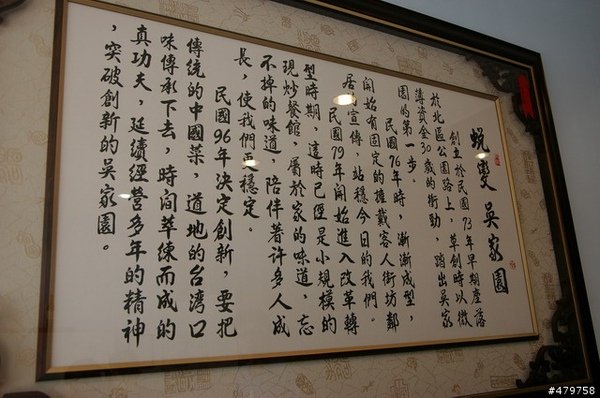 蛻變吳家園
創立於民國73年早期座落
於北區公園路上,草創時以微
薄資金30歲的衝勁,踏出吳家
園的第一步。
民國76年時,漸漸成型,
開始有固定的擁戴客人街坊鄰
居宣傳,站穩今日的我們。
民國79年開始進入改革轉
型時期,這時已俓是小規模的
現炒餐館,屬於家的味道,忘
不掉的味道,陪伴著許多人成
長,使我們更穩定。
民國96年決定創新,要把
傳統的中國菜,道地的台灣口
味傳承下去,時間萃練而成的
真功夫,延續經營多年的精神
,突破創新的吳家園。
#479758